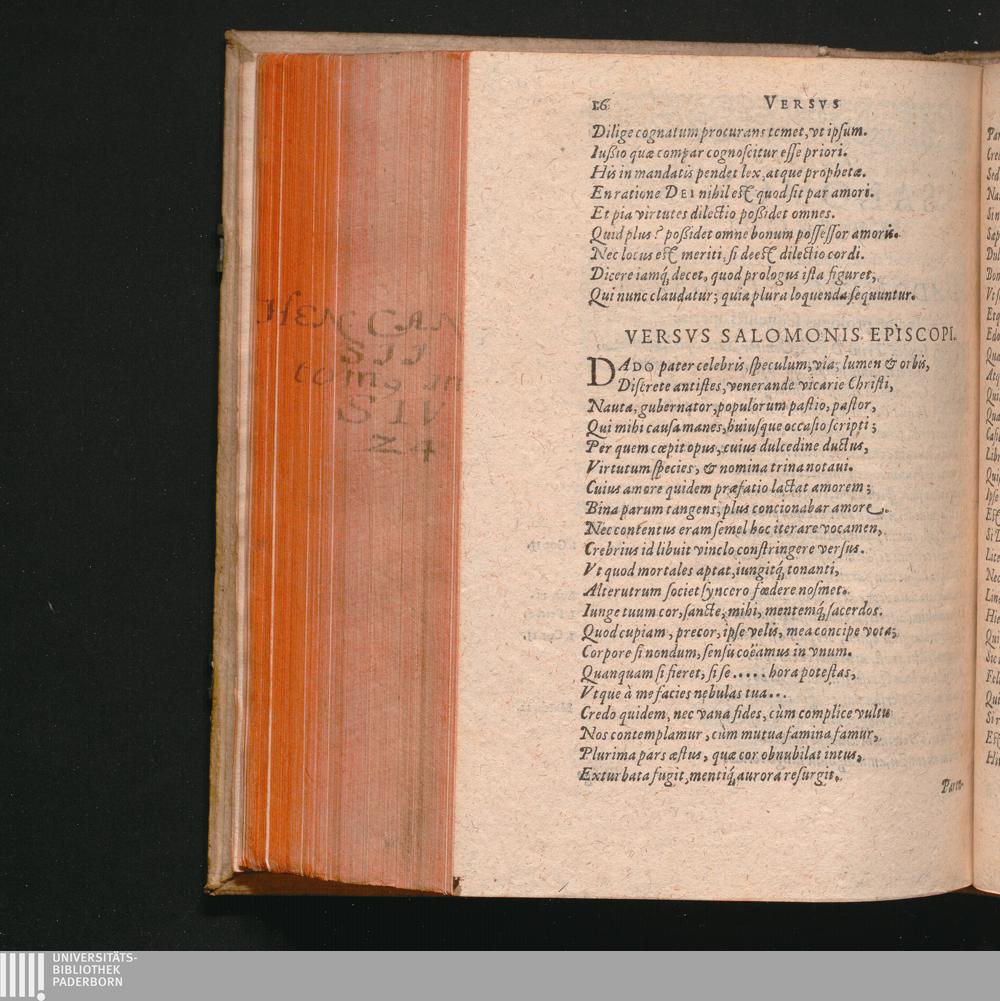 16 VERSVS
Dilige cognatum procurans temet, vt ipsum.
Iußio quæ compar cognoscitur esse priori.
His in mandatis pendet lex, atque prophetæ.
En ratione DEI nihil est quod sit par amori.
Et pia virtutes dilectio poßidet omnes.
Quid plus? poßidet omne bonum possessor amoris.
Nec locus est meriti, si deest dilectio cordi.
Dicere iamq́, decet, quod prologus ista figuret,
Qui nunc claudatur; quia plura loquenda sequuntur.
VERSVS SALOMONIS EPISCOPI.
DADO pater celebris, speculum, via, lumen & orbis,
Discrete antistes, venerande vicarie Christi,
Nauta, gubernator, populorum pastio, pastor,
Qui mihi causa manes, huiusque occasio scripti;
Per quem cœpit opus, cuius dulcedine ductus,
Virtutum species, & nomina trina notaui.
Cuius amore quidem præfatio lactat amorem;
Bina parum tangens, plus concionabar amore.
Nec contentus eram semel hoc iterare vocamen,
Crebrius id libuit vinclo constringere versus.
Vt quod mortales aptat, iungitq́, tonanti,
Alterutrum societ syncero fœdere nosmet.
Iunge tuum cor, sancte, mihi, mentemq́, sacerdos.
Quod cupiam, precor, ipse velis, mea concipe vota;
Corpore si nondum, sensu coëamus in vnum.
Quanquam si fieret, si se..... hora potestas,
Vtque à me facies nebulas tua...
Credo quidem, nec vana fides, cùm complice vultu
Nos contemplamur, cùm mutua famina famur,
Plurima pars æstus, quæ cor obnubilat intus,
Exturbata fugit, mentiq́, aurora resurgit.
HENR CAN
SII
tomg an
SIV
24
UNIVERSITÄTS-
BIBLIOTHEK
PADERBORN